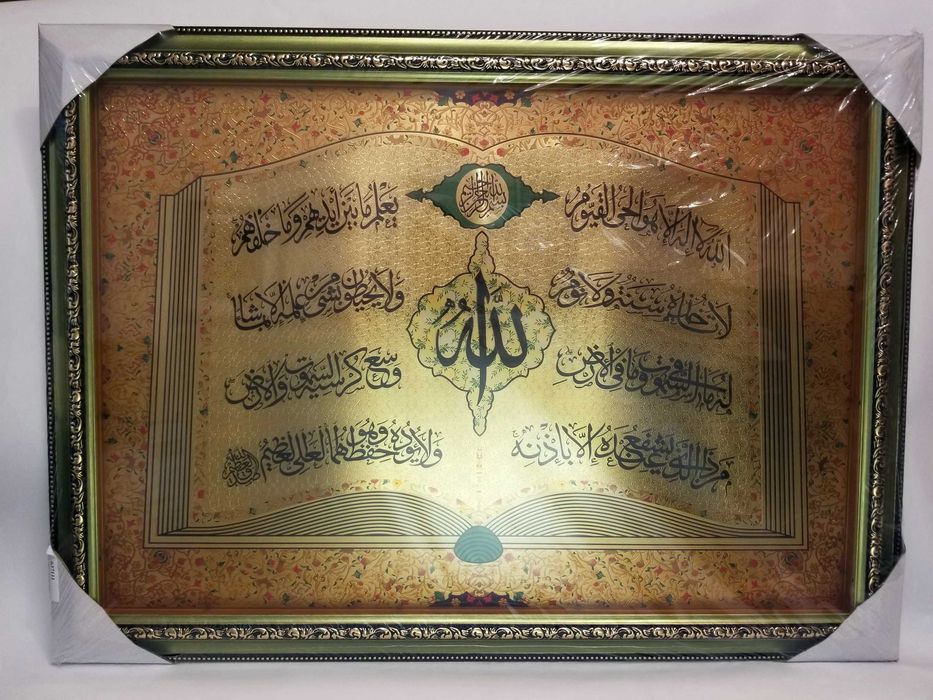 بسم الله الرحمن الرحيم
الله لا إله إلا هو الحي القيوم
لا تأخذه سنة ولا نوم
له ما في السموات وما في الأرض
من ذا الذي يشفع عنده إلا بإذنه
الله
يعلم ما بين أيديهم وما خلفهم
ولا يحيطون بشيء من علمه إلا بما شاء
وسع كرسيه السموات والأرض
ولا يؤده حفظهما وهو العلي العظيم